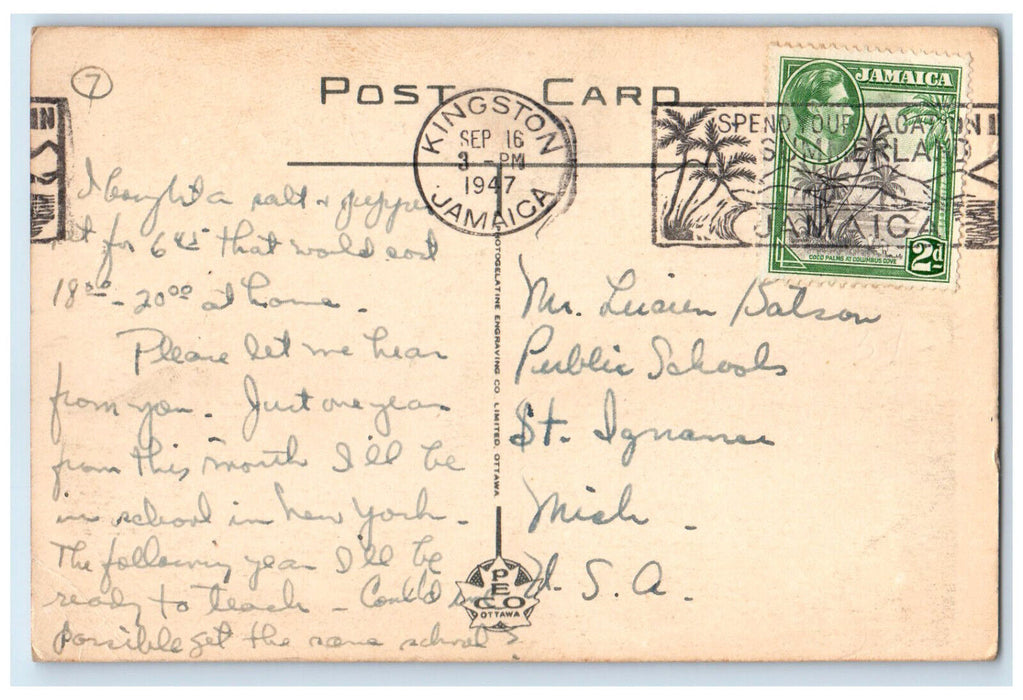 7
POST CARD
KINGSTON
SEP 16
3 - PM
1947
JAMAICA
SPEND YOUR VACATION IN
SUMMERLAND
IS
JAMAICA
JAMAICA
COCO PALMS AT COLUMBUS COVE
2d
I bought a salt & pepper
set for 6 that would cost
18 - 20 at home.
Please let me hear
from you. Just one year
from this month I'll be
in school in New York.
The following year I'll be
ready to teach - Could
possible get the same school?
PHOTOGELATINE ENGRAVING CO. LIMITED, OTTAWA
PECO
OTTAWA
Mr. Lucien Batson
Public Schools
St. Ignance
Mich.
U. S. A.